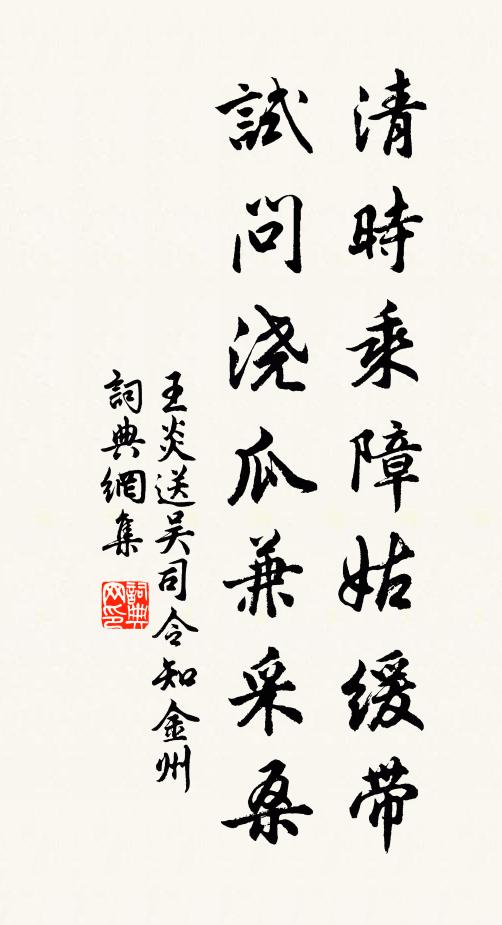 清時乘障姑緩带
試問浇瓜兼采桑
王炎送吴司令知金州
詞典網集
詞典网印